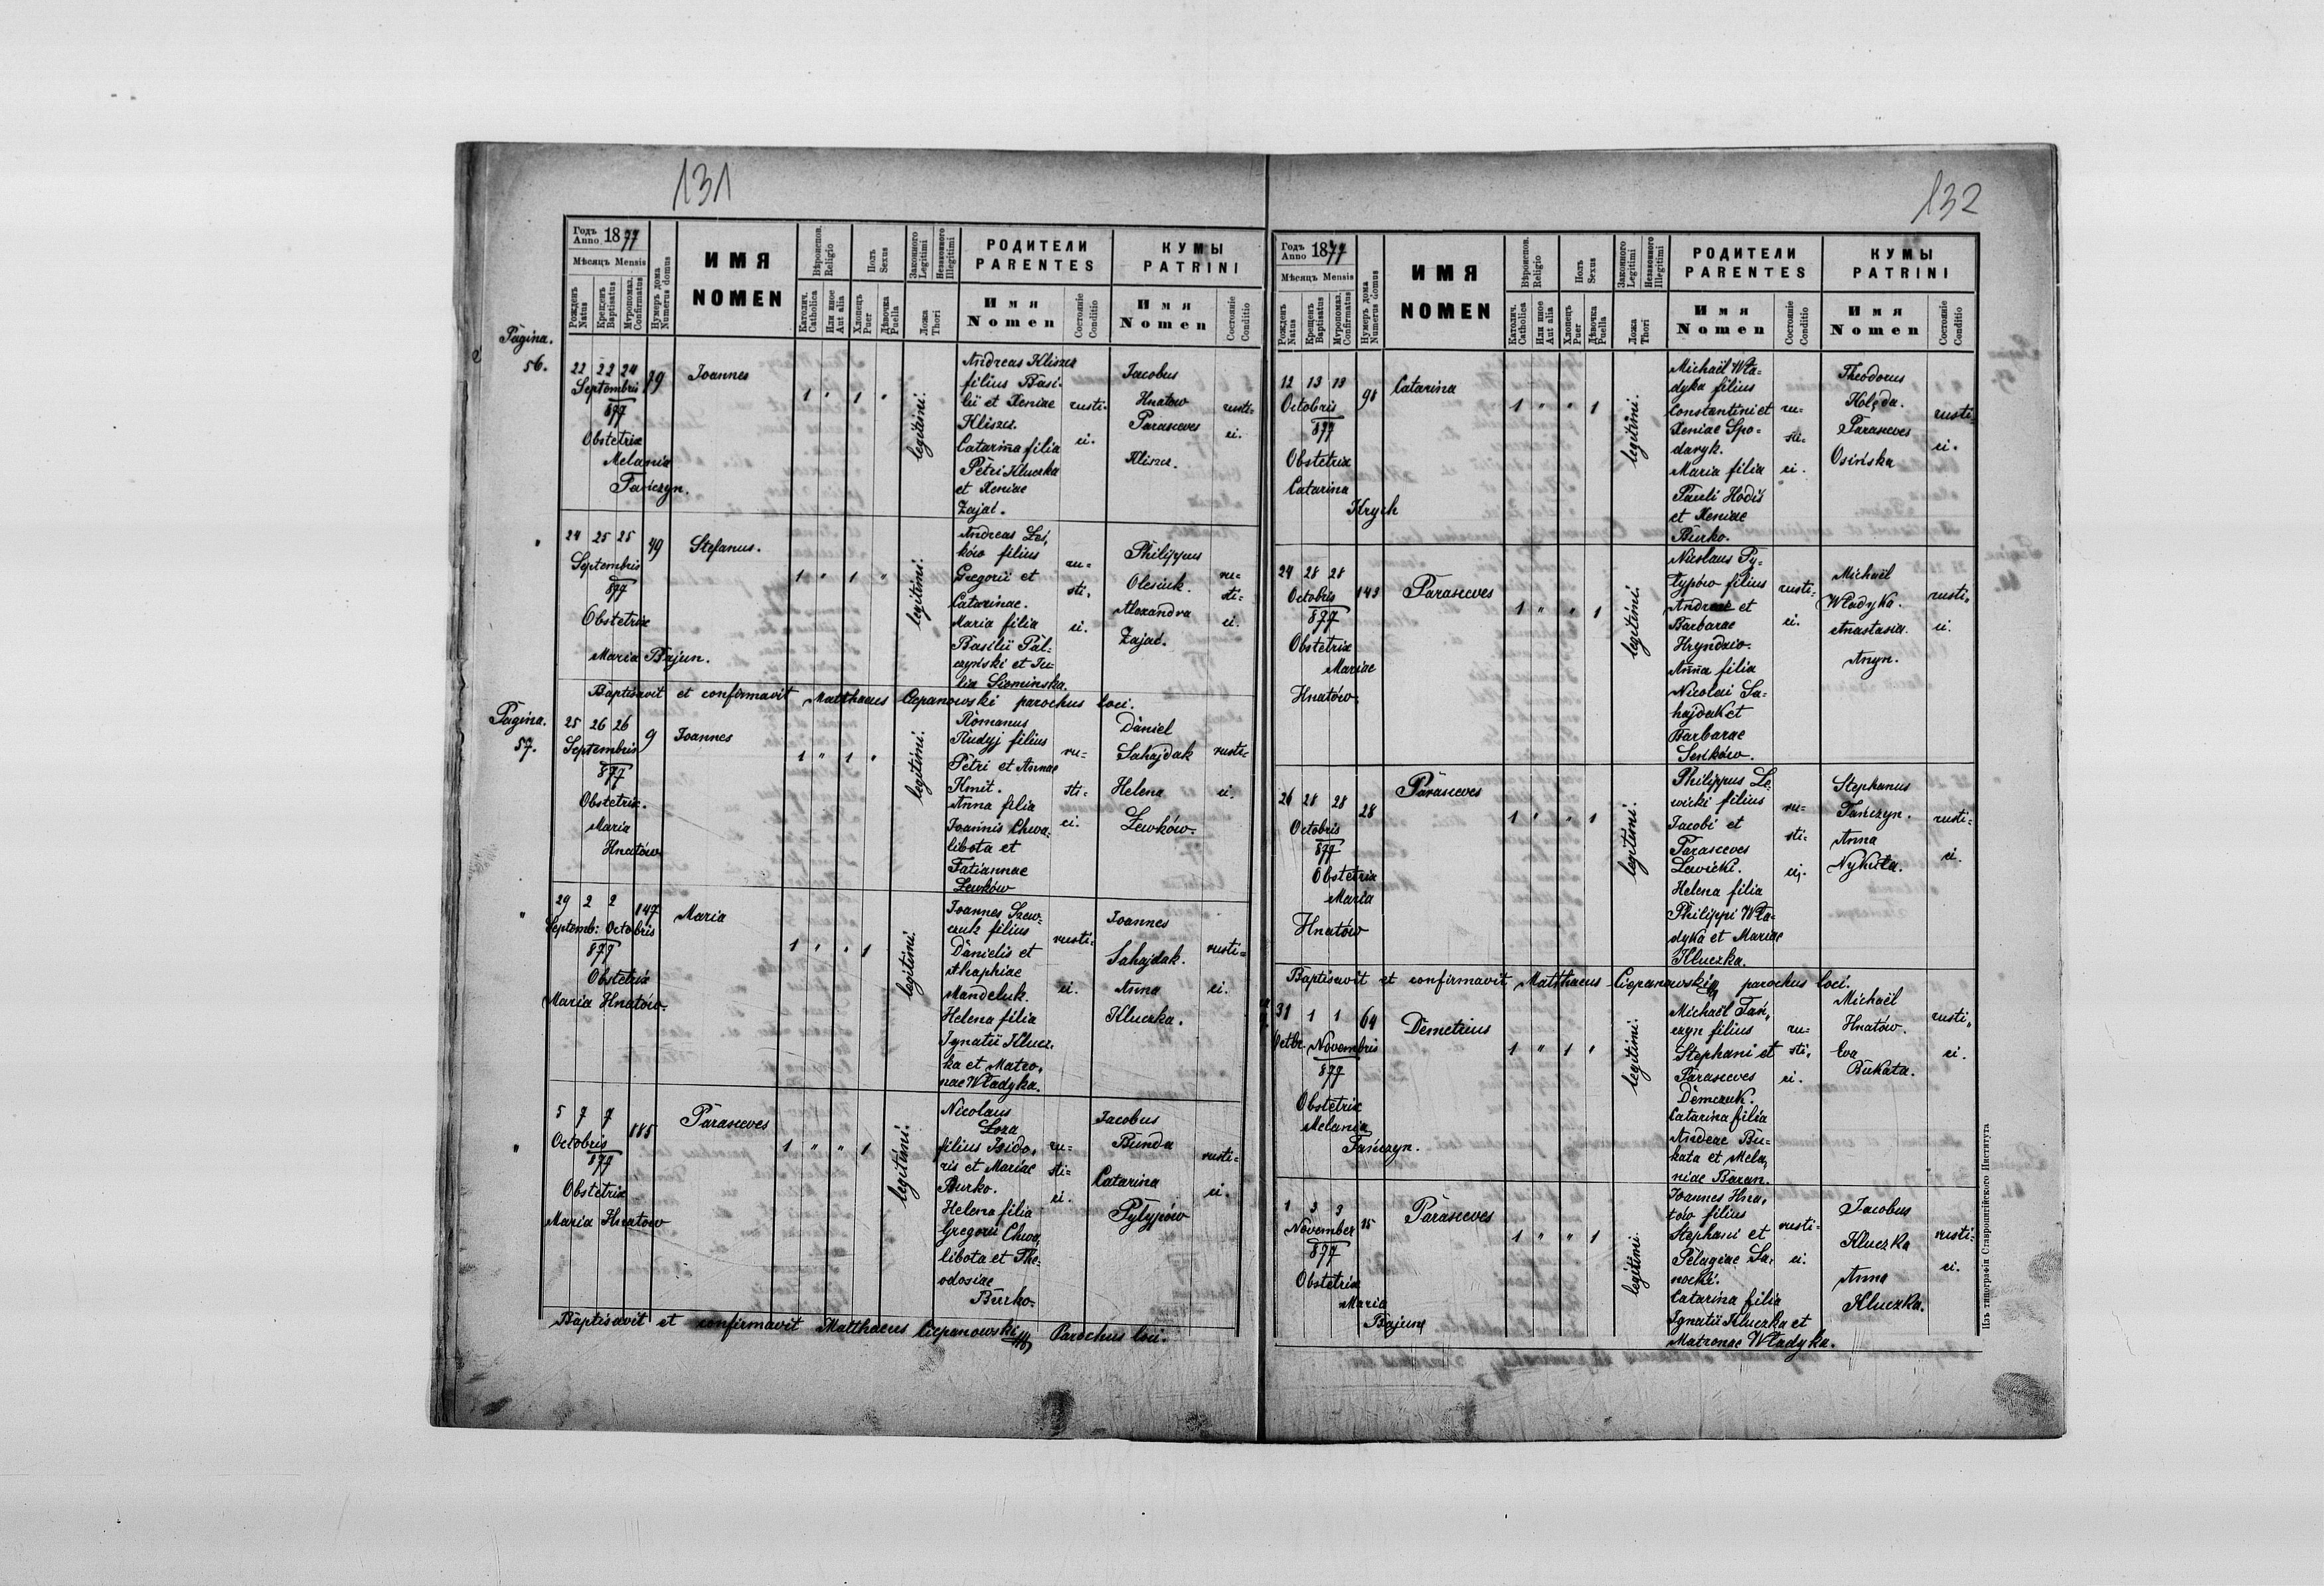 131
Годъ Anno 1877
Мѣсяцъ Mensis
Рожденъ Natus
Крещенъ Baptisatus
Мѵропомаз. Confirmatus
Нумеръ дома Numerus domus
ИМЯ
NOMEN
Вѣроиспов. Religio
Католич. Catholica
Или иное Aut alia
Полъ Sexus
Хлопецъ Puer
Дѣвочка Puella
Законного Legitimi
Незаконного Illegitimi
Ложа Thori
РОДИТЕЛИ
PARENTES
Имя
Nomen
Состояніе Conditio
КУМЫ
PATRINI
Имя
Nomen
Состояніе Conditio
Pagina.
56.
22 22 24
Septembris
877
Obstetrix
Melania
Tańczyn.
79
Joannes
1 " 1 "
legitimi.
Andreas Kliszcz
filius Basi-
lii et Xeniae
Kliszcz.
Catarina filia
Petri Kluczka
et Xeniae
Zając.
rusti-
ci.
Jacobus
Hnatow
Parasceves
Kliszcz.
rusti-
ci.
"
24 25 25
Septembris
877
Obstetrix
Maria Bajun.
49
Stefanus.
1 " 1 "
legitimi.
Andreas
ków filius
Gregorii et
Catarinae.
Maria filia
Basilii Pal-
czyński et Ju-
lia
ru-
sti-
ci.
Philippus
Olesiuk.
Alexandra
Zając.
ru-
sti-
ci.
Baptisavit et confirmavit Matthaeus Ciepanowski parochus loci.
Pagina.
57.
25 26 26
Septembris
877
Obstetrix.
Maria
Hnatów
9
Joannes
1 " 1 "
legitimi.
Romanus
Rudyj filius
Petri et Annae
Kmit.
Anna filia
Joannis Chwa-
libota et
Tatiannae
Lewków
ru-
sti-
ci.
Daniel
Sahajdak
Helena
Lewków.
rusti-
ci.
"
29 2 2
Septemb: Octobris
877
Obstetrix
Maria Hnatów.
147
Maria
1 " " 1
legitimi.
Joannes Szew-
czuk filius
Danielis et
Ahaphiae
Mandeluk.
Helena filia
Ignatii Klucz-
ka et Matro-
nae Władyka.
rusti-
ci.
Joannes
Sahajdak.
Anna
Kluczka.
rusti-
ci.
"
5 7 7
Octobris
877
Obstetrix
Maria Hnatow
185
Parasceves
1 " " 1
legitimi.
Nicolaus
Łoza
filius Isido-
ris et Mariae
Burko.
Helena filia
Gregorii Chwa-
libota et The-
odosiae
Burko.
ru-
sti-
ci.
Jacobus
Bunda
Catarina
Pylypów
rusti-
ci.
Baptisavit et confirmavit Matthaeus Ciepanowski Parochus loci.
132
Годъ Anno 1877
Мѣсяцъ Mensis
Рожденъ Natus
Крещенъ Baptisatus
Мѵропомаз. Confirmatus
Нумеръ дома Numerus domus
ИМЯ
NOMEN
Вѣроиспов. Religio
Католич. Catholica
Или иное Aut alia
Полъ Sexus
Хлопецъ Puer
Дѣвочка Puella
Законного Legitimi
Незаконного Illegitimi
Ложа Thori
РОДИТЕЛИ
PARENTES
Имя
Nomen
Состояніе Conditio
КУМЫ
PATRINI
Имя
Nomen
Состояніе Conditio
12 13 13
Octobris
877
Obstetrix
Catarina
Krych
98
Catarina
1 " " 1
legitimi.
Michaël Wła-
dyka filius
Constantini et
Xeniae Spo-
daryk.
Maria filia
Pauli Hodiś
et Xeniae
Burko.
ru-
sti-
ci.
Theodorus
Kolęda.
Parasceves
Osińska
rusti-
ci.
24 28 28
Octobris
877
Obstetrix
Mariae
Hnatów.
143
Parasceves
1 " " 1
legitimi.
Nicolaus Py-
lypów filius
Andreae et
Barbarae
Hryndzio.
Anna filia
Nicolai Sa-
hajdak et
Barbarae
Seńków.
rusti-
ci.
Michaël
Władyka.
Anastasia.
Anyn.
rusti-
ci.
26 28 28
Octobris
877
Obstetrix
Maria
Hnatów
28
Parasceves
1 " " 1
legitimi.
Philippus Le-
wicki filius
Jacobi et
Parasceves
Lewicki.
Helena filia
Philippi Wła-
dyka et Mariae
Kluczka.
ru-
sti-
ci.
Stephanus
Tańczyn.
Anna
Nykuta.
rusti-
ci.
Baptisavit et confirmavit Matthaeus Ciepanowski parochus loci.
31 1 1
Octbr. Novembris
877
Obstetrix
Melania
Tańczyn.
64
Demetrius
1 " 1 "
legitimi.
Michaël Tań-
czyn filius
Stephani et
Parasceves
Demczuk.
Catarina filia
Andeae Bu-
kata et Mela-
niae Baran.
ru-
sti-
ci.
Michaël
Hnatów.
Eva
Bukata.
rusti-
ci.
1 3 3
November
877
Obstetrix
Maria
Bajun
15
Parasceves
1 " " 1
legitimi.
Joannes Hna-
tów filius
Stephani et
Pelagiae Sa-
nocki.
Catarina filia
Ignatii Kluczka et
Matronae Władyka.
rusti-
ci.
Jacobus
Kluczka
Anna
Kluczka.
rusti-
ci.
Изъ типографіи Ставропигійского Института